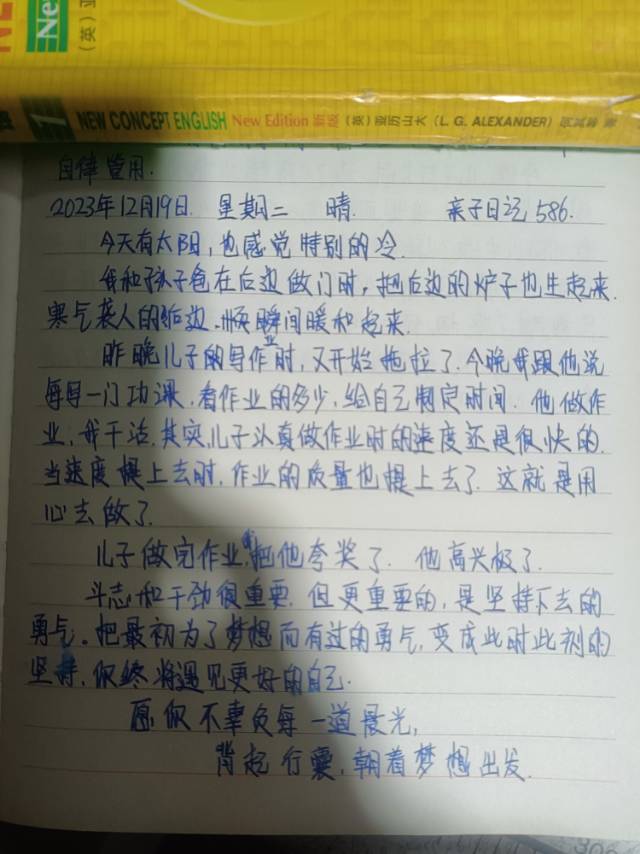 Ne
(英)
1 NEW CONCEPT ENGLISH New Edition 新版 (英) 亚历山大 (L. G. ALEXANDER) 何其莘 著
自律管用.
2023年12月19日. 星期二 晴. 亲子日记 586.
今天有太阳,也感觉特别的冷.
我和孩子爸在后边做门时,把后边的炉子也生起来.
寒气袭人的后边.瞬间暖和起来.
昨晚儿子的写作业时,又开始拖拉了.今晚我跟他说
每写一门功课.看作业的多少.给自己制定时间. 他做作
业.我干活.其实儿子认真做作业时的速度还是很快的.
当速度提上去时.作业的质量也提上去了.这就是用
心去做了.
儿子做完作业,我把他夸奖了. 他高兴极了.
斗志和干劲很重要. 但更重要的,是坚持下去的
勇气。把最初为了梦想而有过的勇气,变成此时此刻的
坚持.你终将遇见更好的自己.
愿你不辜负每一道晨光,
背起行囊.朝着梦想出发.